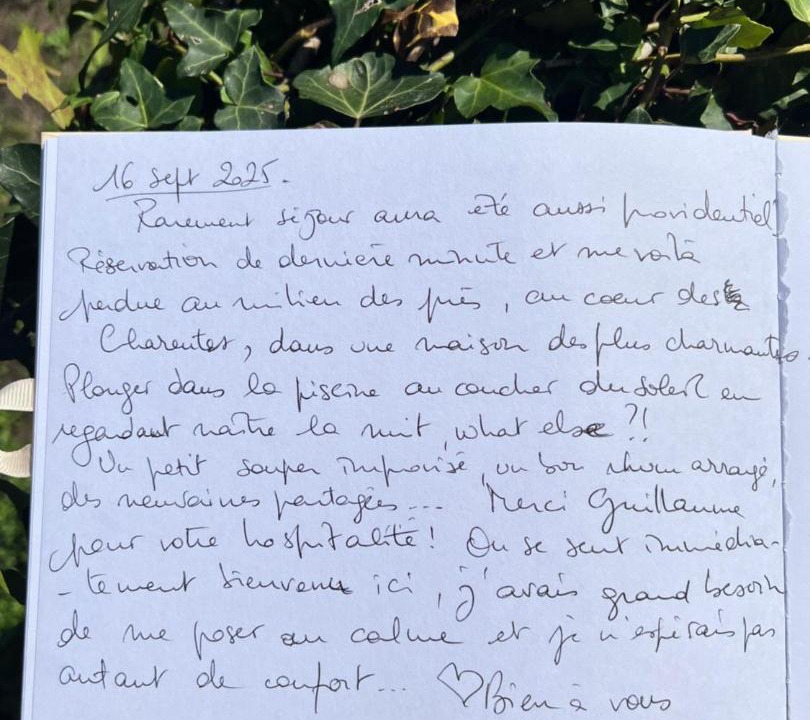 16 sept 2025.
Rarement séjour aura été aussi providentiel
Réservation de dernière minute et me voilà
perdue au milieu des prés, au coeur des
Charentes, dans une maison des plus charmantes.
Plonger dans la piscine au coucher du soleil en
regardant naître la nuit, what else ?!
Un petit souper improvisé, un bon rhum arrangé,
des neuvaines partagées... Merci Guillaume
pour votre hospitalité! On se sent immédia-
-tement bienvenu ici, j'avais grand besoin
de me poser au calme et je n'espérais pas
autant de confort... ♡ Bien à vous